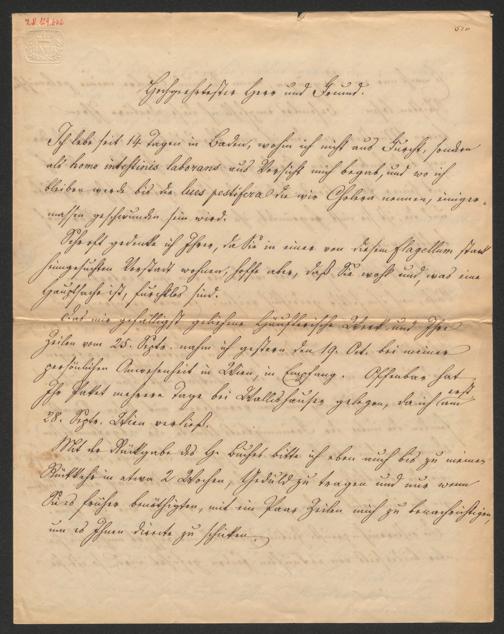 I.N. 129.606
Hochgeehrtester Herr und Freund.
Ich lebe seit 14 Tagen in Baden, wohin ich nicht aus Furcht, sondern
als homo intestinis laborans aus Vorsicht mich begab, und wo ich
bleiben werde bis die lues pestifera die wir Cholera nennen, einiger-
massen geschwunden sein wird.
Scherft gedenke ich Ihrer, da Sie in einer von diesem flagellum stark
heimgesuchten Vorstadt wohnen; hoffe aber, daß Sie wohl und was eine
Hauptsache ist, furchtlos sind.
Das mir gefälligst geliehene Häufler'sche Werk und Ihre
Zeilen vom 25. Septr. nahm ich gestern den 19. Oct. bei meiner
persönlichen Anwesenheit in Wien, in Empfang. Offenbar hat
Ihr Paket mehrere Tage bei Wallishausser gelegen, da ich erst am
28. Septr. Wien verließ.
Mit der Rückgabe des H. Buches bitte ich eben auch bis zu meiner
Rückkehr in etwa 2 Wochen, Geduld zu tragen und nur wenn
Sie es früher benöthigten, mit ein Paar Zeilen mich zu benachrichtigen,
um es Ihnen directe zu schicken.